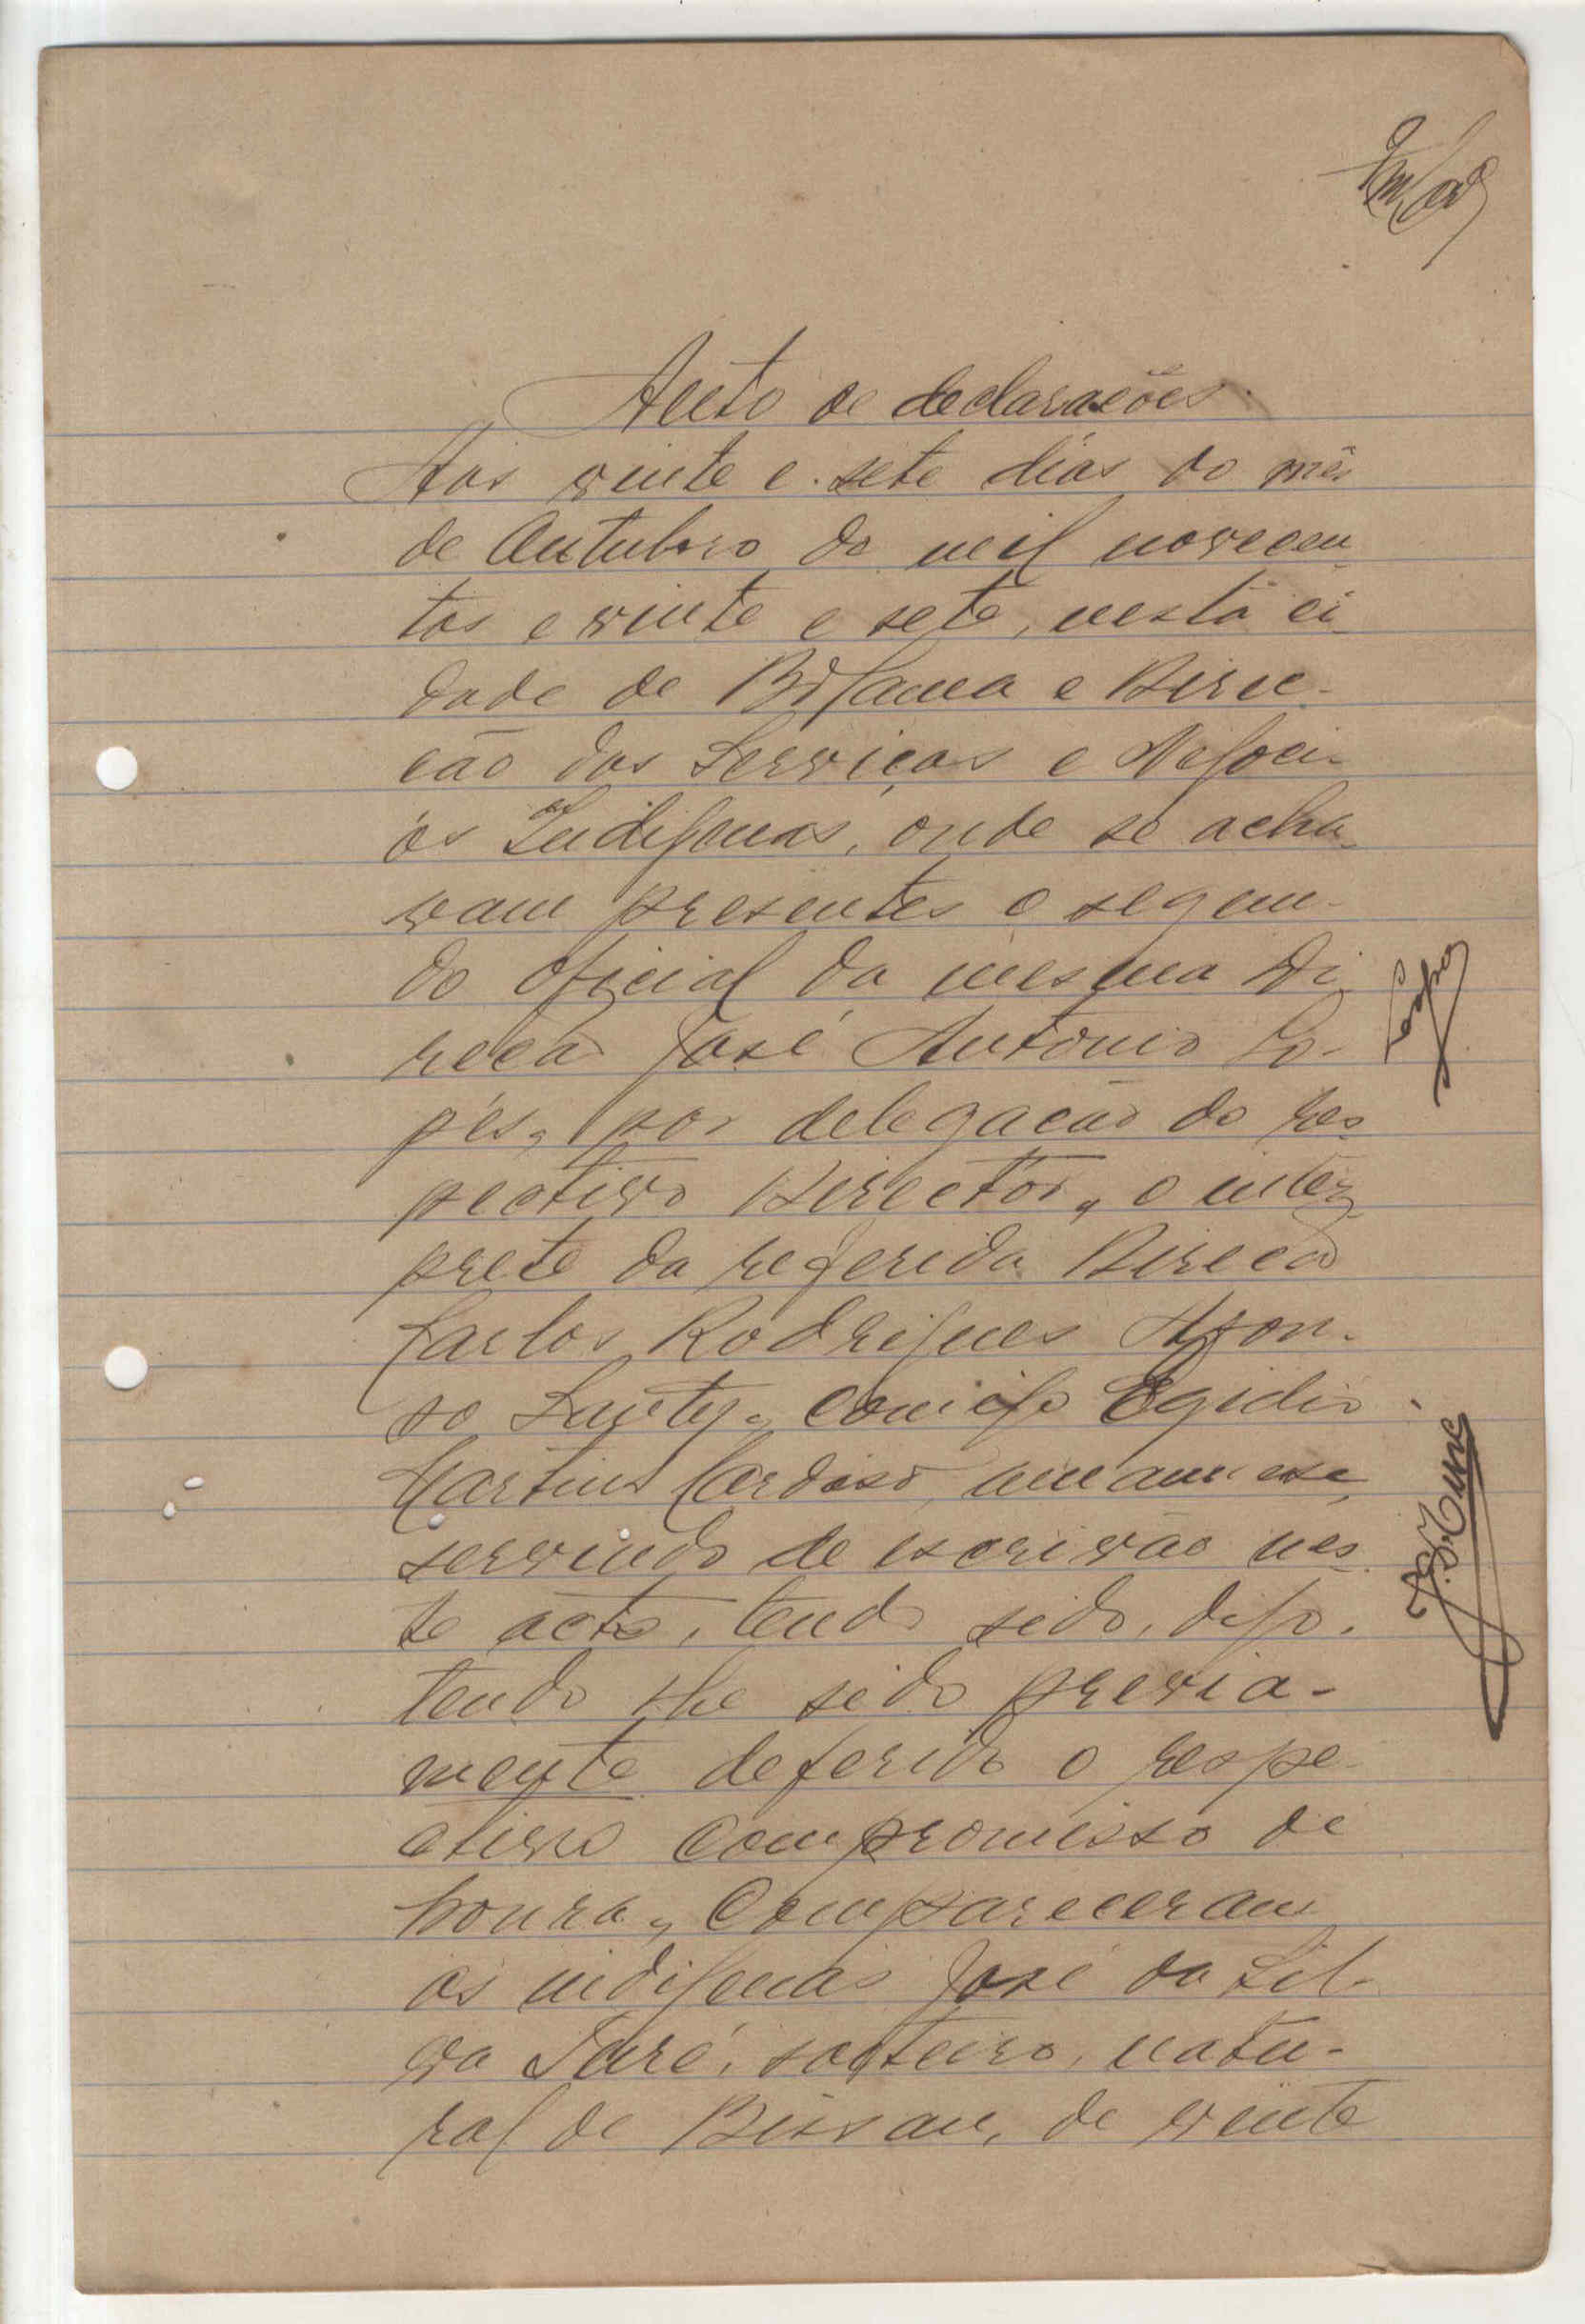 Auto de declarações
Aos vinte e sete dias do mês
de Outubro de mil novecen-
tos e vinte e sete, nesta ci-
dade de Bolama e Direc-
ção dos Serviços e Negoci-
os Indigenas, onde se acha-
vam presentes o segun-
do oficial da mesma Di-
recção José Antonio Lo-
pes, por delegação do res-
pectivo Director, o inter-
prete da referida Direcção
Carlos Rodrigues Afon-
so Santy, comigo Egidio
Martins Cardoso, amanuense
servindo de escrivão nes-
te acto, tendo sido, digo,
tendo-lhe sido previa-
mente deferido o respe-
ctivo compromisso de
honra, compareceram
os indigenas José da Sil-
va Turé, solteiro, natu-
ral de Bissau, de vinte
Lopes